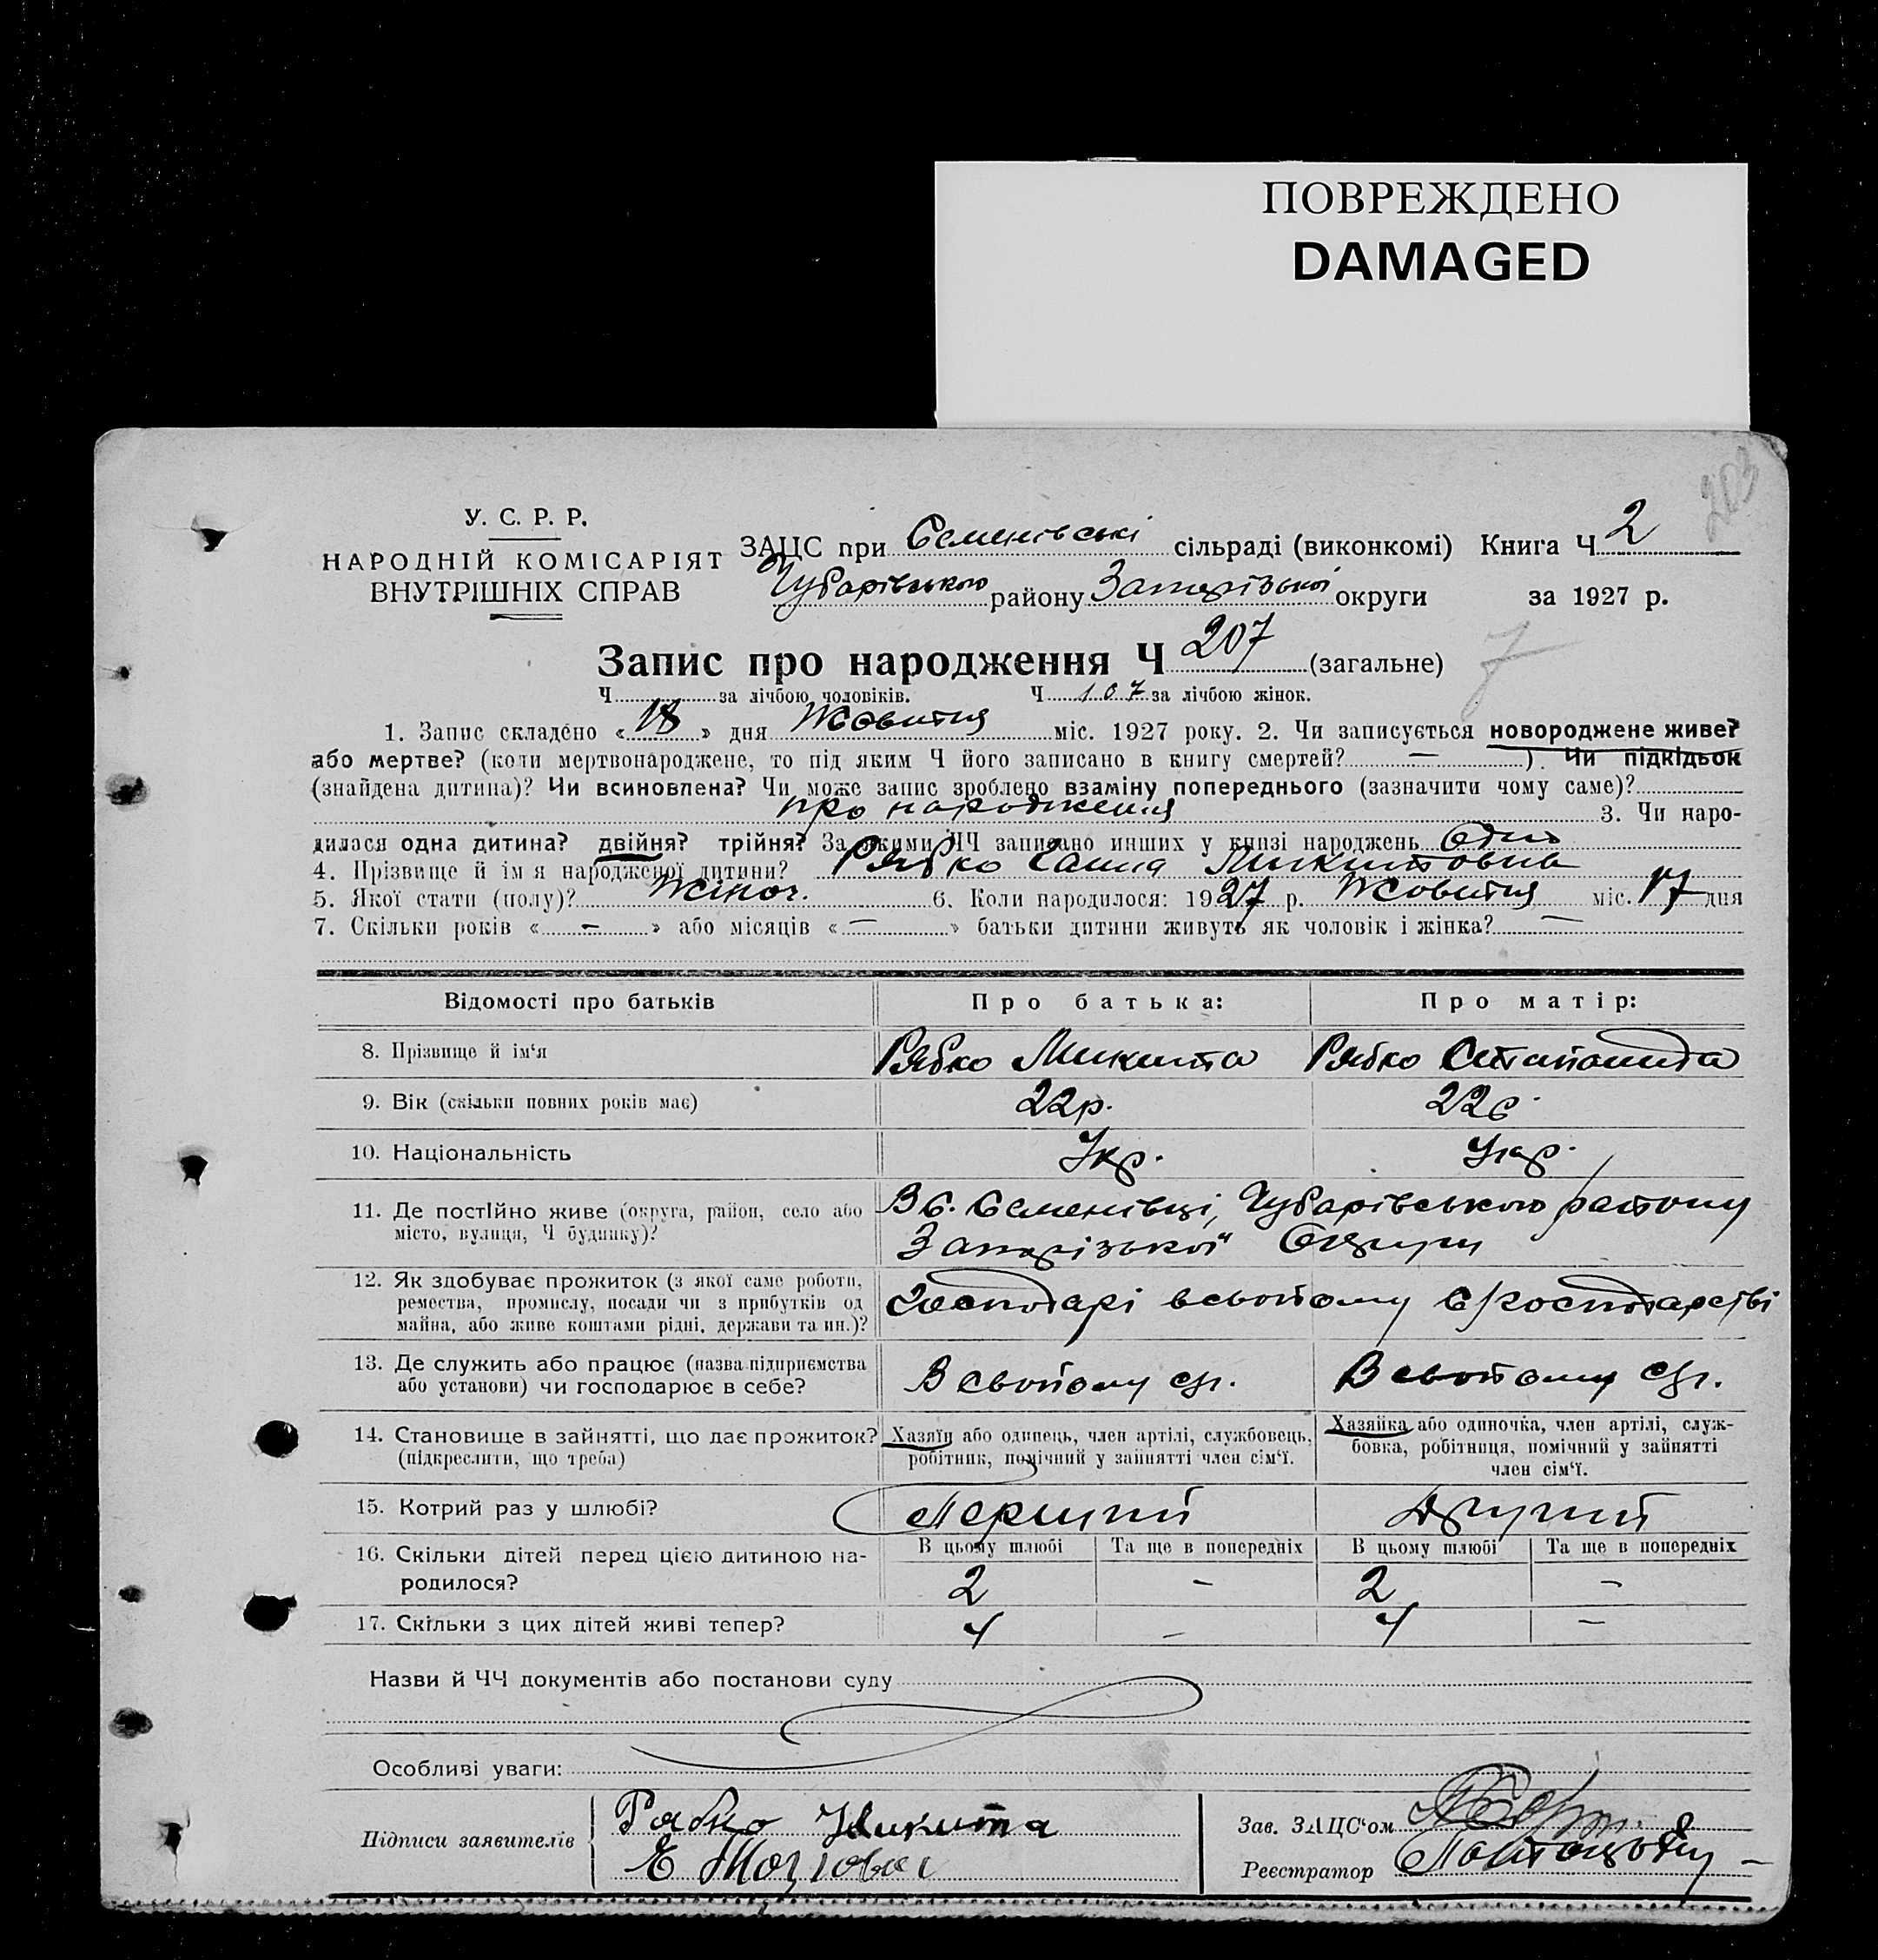 ПОВРЕЖДЕНО
DAMAGED
203
У. С. Р. Р.
НАРОДНІЙ КОМІСАРІЯТ
ВНУТРІШНІХ СПРАВ
ЗАЦС при Семенівські сільраді (виконкомі) Книга Ч 2
Чубарівського району Запорізької округи за 1927 р.
Запис про народження Ч 207 (загальне)
7
Ч за лічбою чоловіків. Ч 107 за лічбою жінок.
1. Запис складено « 18 » дня Жовтня міс. 1927 року. 2. Чи записується новороджене живе?
або мертве? (коли мертвонароджене, то під яким Ч його записано в книгу смертей? — ). Чи підкідьок
(знайдена дитина)? Чи всиновлена? Чи може запис зроблено взаміну попереднього (зазначити чому саме)?
про народження 3. Чи наро-
дилася одна дитина? двійня? трійня? За якими ЧЧ записано инших у книзі народжень одно
4. Прізвище й ім я народженої дитини? Рябко Ганна Микитовна
5. Якої стати (полу)? Жіноч. 6. Коли народилося: 1927 р. Жовтня міс. 17 дня
7. Скільки років « — » або місяців « — » батьки дитини живуть як чоловік і жінка? —
Відомості про батьків Про батька: Про матір:
8. Прізвище й ім'я Рябко Микита Рябко Степанида
9. Вік (скільки повних років має) 22р. 22р.
10. Національність Укр. Укр.
11. Де постійно живе (округа, район, село або
місто, вулиця, Ч будинку)?
В с. Семенівці, Чубарівського району
Запорізької Округи
12. Як здобуває прожиток (з якої саме роботи,
ремества, промислу, посади чи з прибутків од
майна, або живе коштами рідні, держави та ин.)?
Господарі всвойому с/господарстві
13. Де служить або працює (назва підприємства
або установи) чи господарює в себе?
В свойому с/г. В свойому с/г.
14. Становище в зайнятті, що дає прожиток?
(підкреслити, що треба)
Хазяїн або одинець, член артілі, службовець,
робітник, помічний у зайнятті член сім'ї.
Хазяйка або одиночка, член артілі, служ-
бовка, робітниця, помічний у зайнятті
член сім'ї.
15. Котрий раз у шлюбі? Перший Другий
В цьому шлюбі Та ще в попередніх В цьому шлюбі Та ще в попередніх
16. Скільки дітей перед цією дитиною на-
родилося?
2 — 2 —
17. Скільки з цих дітей живі тепер? — —
Назви й ЧЧ документів або постанови суду
Особливі уваги:
Підписи заявителів
Рябко Микита
Е
Зав. ЗАЦС'ом
Реєстратор